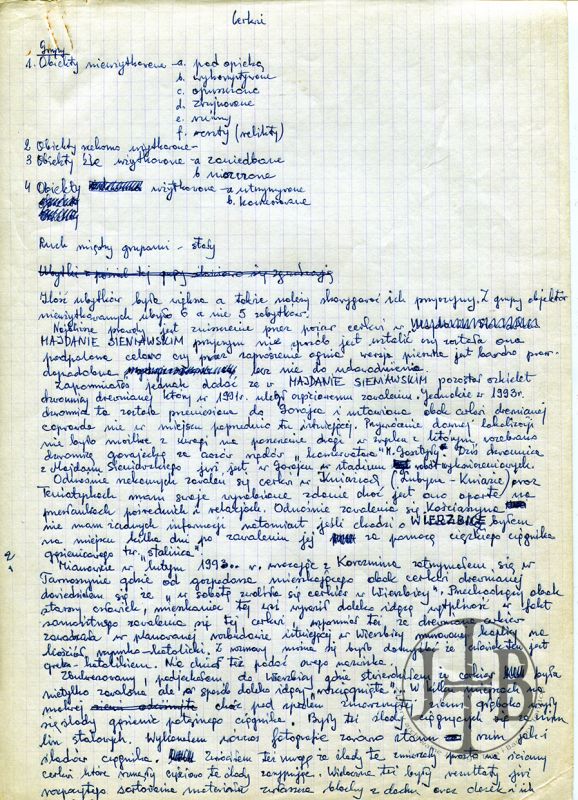 Cerkwi
Grupy
1. Obiekty nieużytkowane - a. pod opieką
b. wykorzystywane
c. opuszczone
d. zrujnowane
e. ruiny
f. resztki (relikty)
2 Obiekty rekomo użytkowane -
3 Obiekty źle użytkowane - a zaniedbane
b niszczone
4 Obiekty użytkowane - a utrzymywane
b.
Ruch między grupami - stały
Ubytki z pośród tej grupy
Ilość ubytków była większa a także należy skorygować ich przyczyny. Z grupy obiektów
nieużytkowanych ubyło 6 a nie 5 zabytków.
prawdy jest zniszczenie przez pożar cerkwi w
MAJDANIE SIENIAWSKIM przyczym nie sposób jest ustalić czy została ona
podpalona celowo czy przez zaprószenie ognia, wersja pierwsza jest bardzo praw-
dopodobna lecz nie do udowodnienia.
Zapomniałeś jednak dodać że w MAJDANIE SIENIAWSKIM pozostał szkielet
dzwonnicy drewnianej który w 1991r. uległ częściowemu zawaleniu. Jednakże w 1993r.
dzwonnica ta została przeniesiona do Gorajca i ustawiona obok cerkwi drewnianej
coprawda nie w miejscu poprzednio tu istniejącej. Przywrócenie dawnej lokalizacji
nie było możliwe z uwagi na poszerzenie drogi w związku z którym, rozebrano
dzwonnicę gorajecką za czasów rządów "konserwatora" Dziś dzwonnica
z Majdanu Sieniawskiego już jest w Gorajcu w stadium robót wykończeniowych.
Odnośnie rekomych zawaleń się cerkwi w Kniaziach (Lubycza - Kniazie) oraz
Teniatyskach mam swoje wyrobione zdanie choć jest ono oparte na
przesłankach pośrednich i relacjach. Odnośnie zawalenia się Kościaszyna
nie mam żadnych informacji natomiast jeśli chodzi o WIERZBICĘ byłem
na miejscu kilka dni po zawaleniu jej za pomocą ciężkiego ciągnika
gąsienicowego tzw. "stalińca".
Mianowicie w lutym 1993 r. wracając z Korczmina zatrzymałem się w
Tarnoszynie gdzie od gospodarza mieszkającego obok cerkwi drewnianej
dowiedziałem się że "w sobotę zwaliła się cerkiew w Wierzbicy". Przechodzący obok
starszy człowiek, mieszkaniec tej wsi wyraził daleko idącą wątpliwość w fakt
samoistnego zawalenia się tej cerkwi, wspomniał też że drewniana cerkiew
zawadzała w planowanej rozbudowie istniejącej w Wierzbicy murowanej kaplicy na
kościół rzymsko-katolicki. Z rozmowy można się było domyślać że człowiek ten jest
greko-katolikiem. Nie chciał też podać swego nazwiska.
Zbulwersowany, podjechałem do Wierzbicy gdzie stwierdziłem że cerkiew była
nietylko zawalona ale w sposób daleko idący "rozciągnięta". W kilku miejscach na
mokrej choć pod spodem zmarzniętej ziemi głęboko wryły
się ślady gąsienic potężnego ciągnika. Były też ślady ciągnących się po ziemi
lin stalowych. Wykonałem wówczas fotografie zarówno stanu ruin jak i
śladów ciągnika. Zwróciłem też uwagę że ślady te zmierzały prosto na ściany
cerkwi które runęły częściowo te ślady zasypując. Widoczne też były rezultaty już
rozpoczętego sortowania materiału zwłaszcza blachy z dachu oraz desek i ich
2
JHB